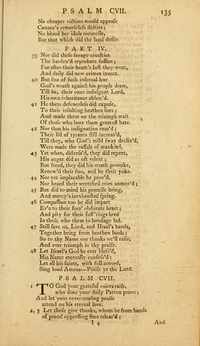 PSALM CVII. 135
No cheaper victims would appease
Canaan's remorseless deities;
No blood her idols reconcile,
But that which did the land defile.
PART IV.
39 Nor did these savage cruelties
The harden'd reprobates suffice;
For after their heart's lust they went,
And daily did new crimes invent.
40 But sins of such infernal hue
God's wrath against his people drew,
Till he, their once indulgent Lord,
His own inheritance abhorr'd.
41 He them defenceless did expose,
To their insulting heathen foes;
And made them on the triumph wait
Of those who bore them greatest hate.
42 Nor thus his indignation
Their list of tyrants still increas'd,
Till they, who God's mild sway declin'd,
Were made the vassals of mankind.
43 Yet when, distress'd, they did repent,
His anger did as oft relent;
But freed, they did his wrath provoke,
Renew'd their sins, and he their yoke.
44 Nor yet implacable he prov'd,
Nor heard their wretched cries unmov'd;
45 But did to mind his promise bring,
And mercy's inexhausted spring.
46 Compassion too he did impart
Ev'n to their foes' obdurate heart;
And pity for their suff'rings bred
In those, who them to bondage led.
47 Still save us, Lord, and Israel's bands,
Together bring from heathen lands;
So to thy Name our thanks we'll raise,
And ever triumph in thy praise.
48 Let Israel's God be ever bless'd,
His Name eternally confess'd:
Let all his saints, with full accord,
Sing loud Amens—Praise ye the Lord.
PSALM CVII.
1 TO God your grateful voices raise,
who does your daily Patron prove;
And let your never-ceasing praise
attend on his eternal love.
2, 3 Let those give thanks, whom he from bands
of proud oppressing foes releas'd;
And